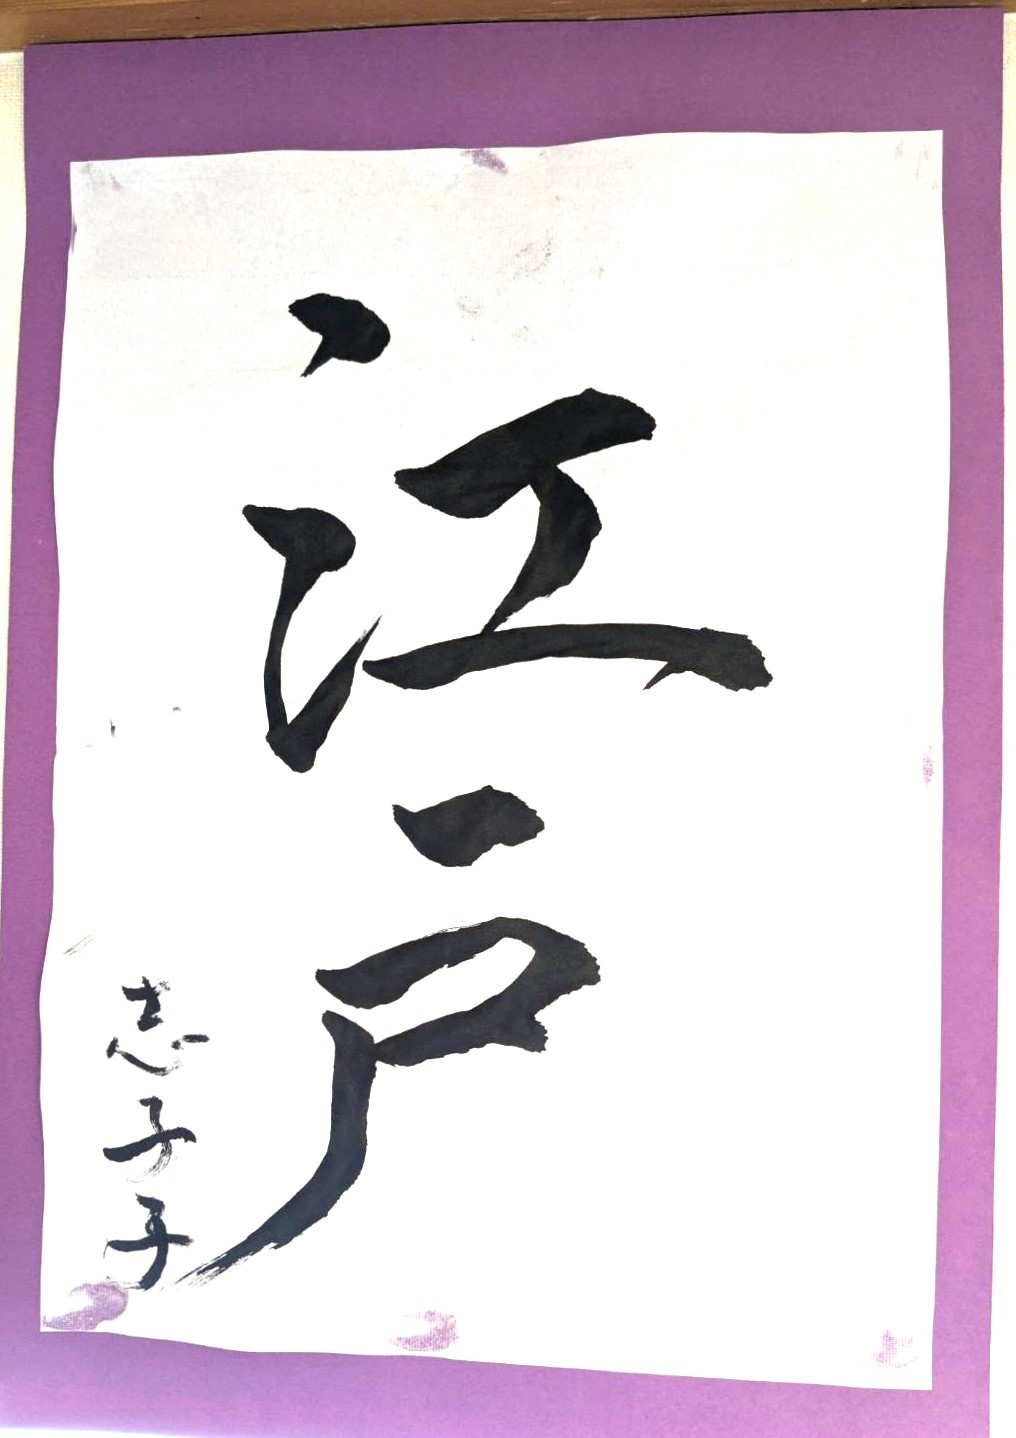 江戸
志子子